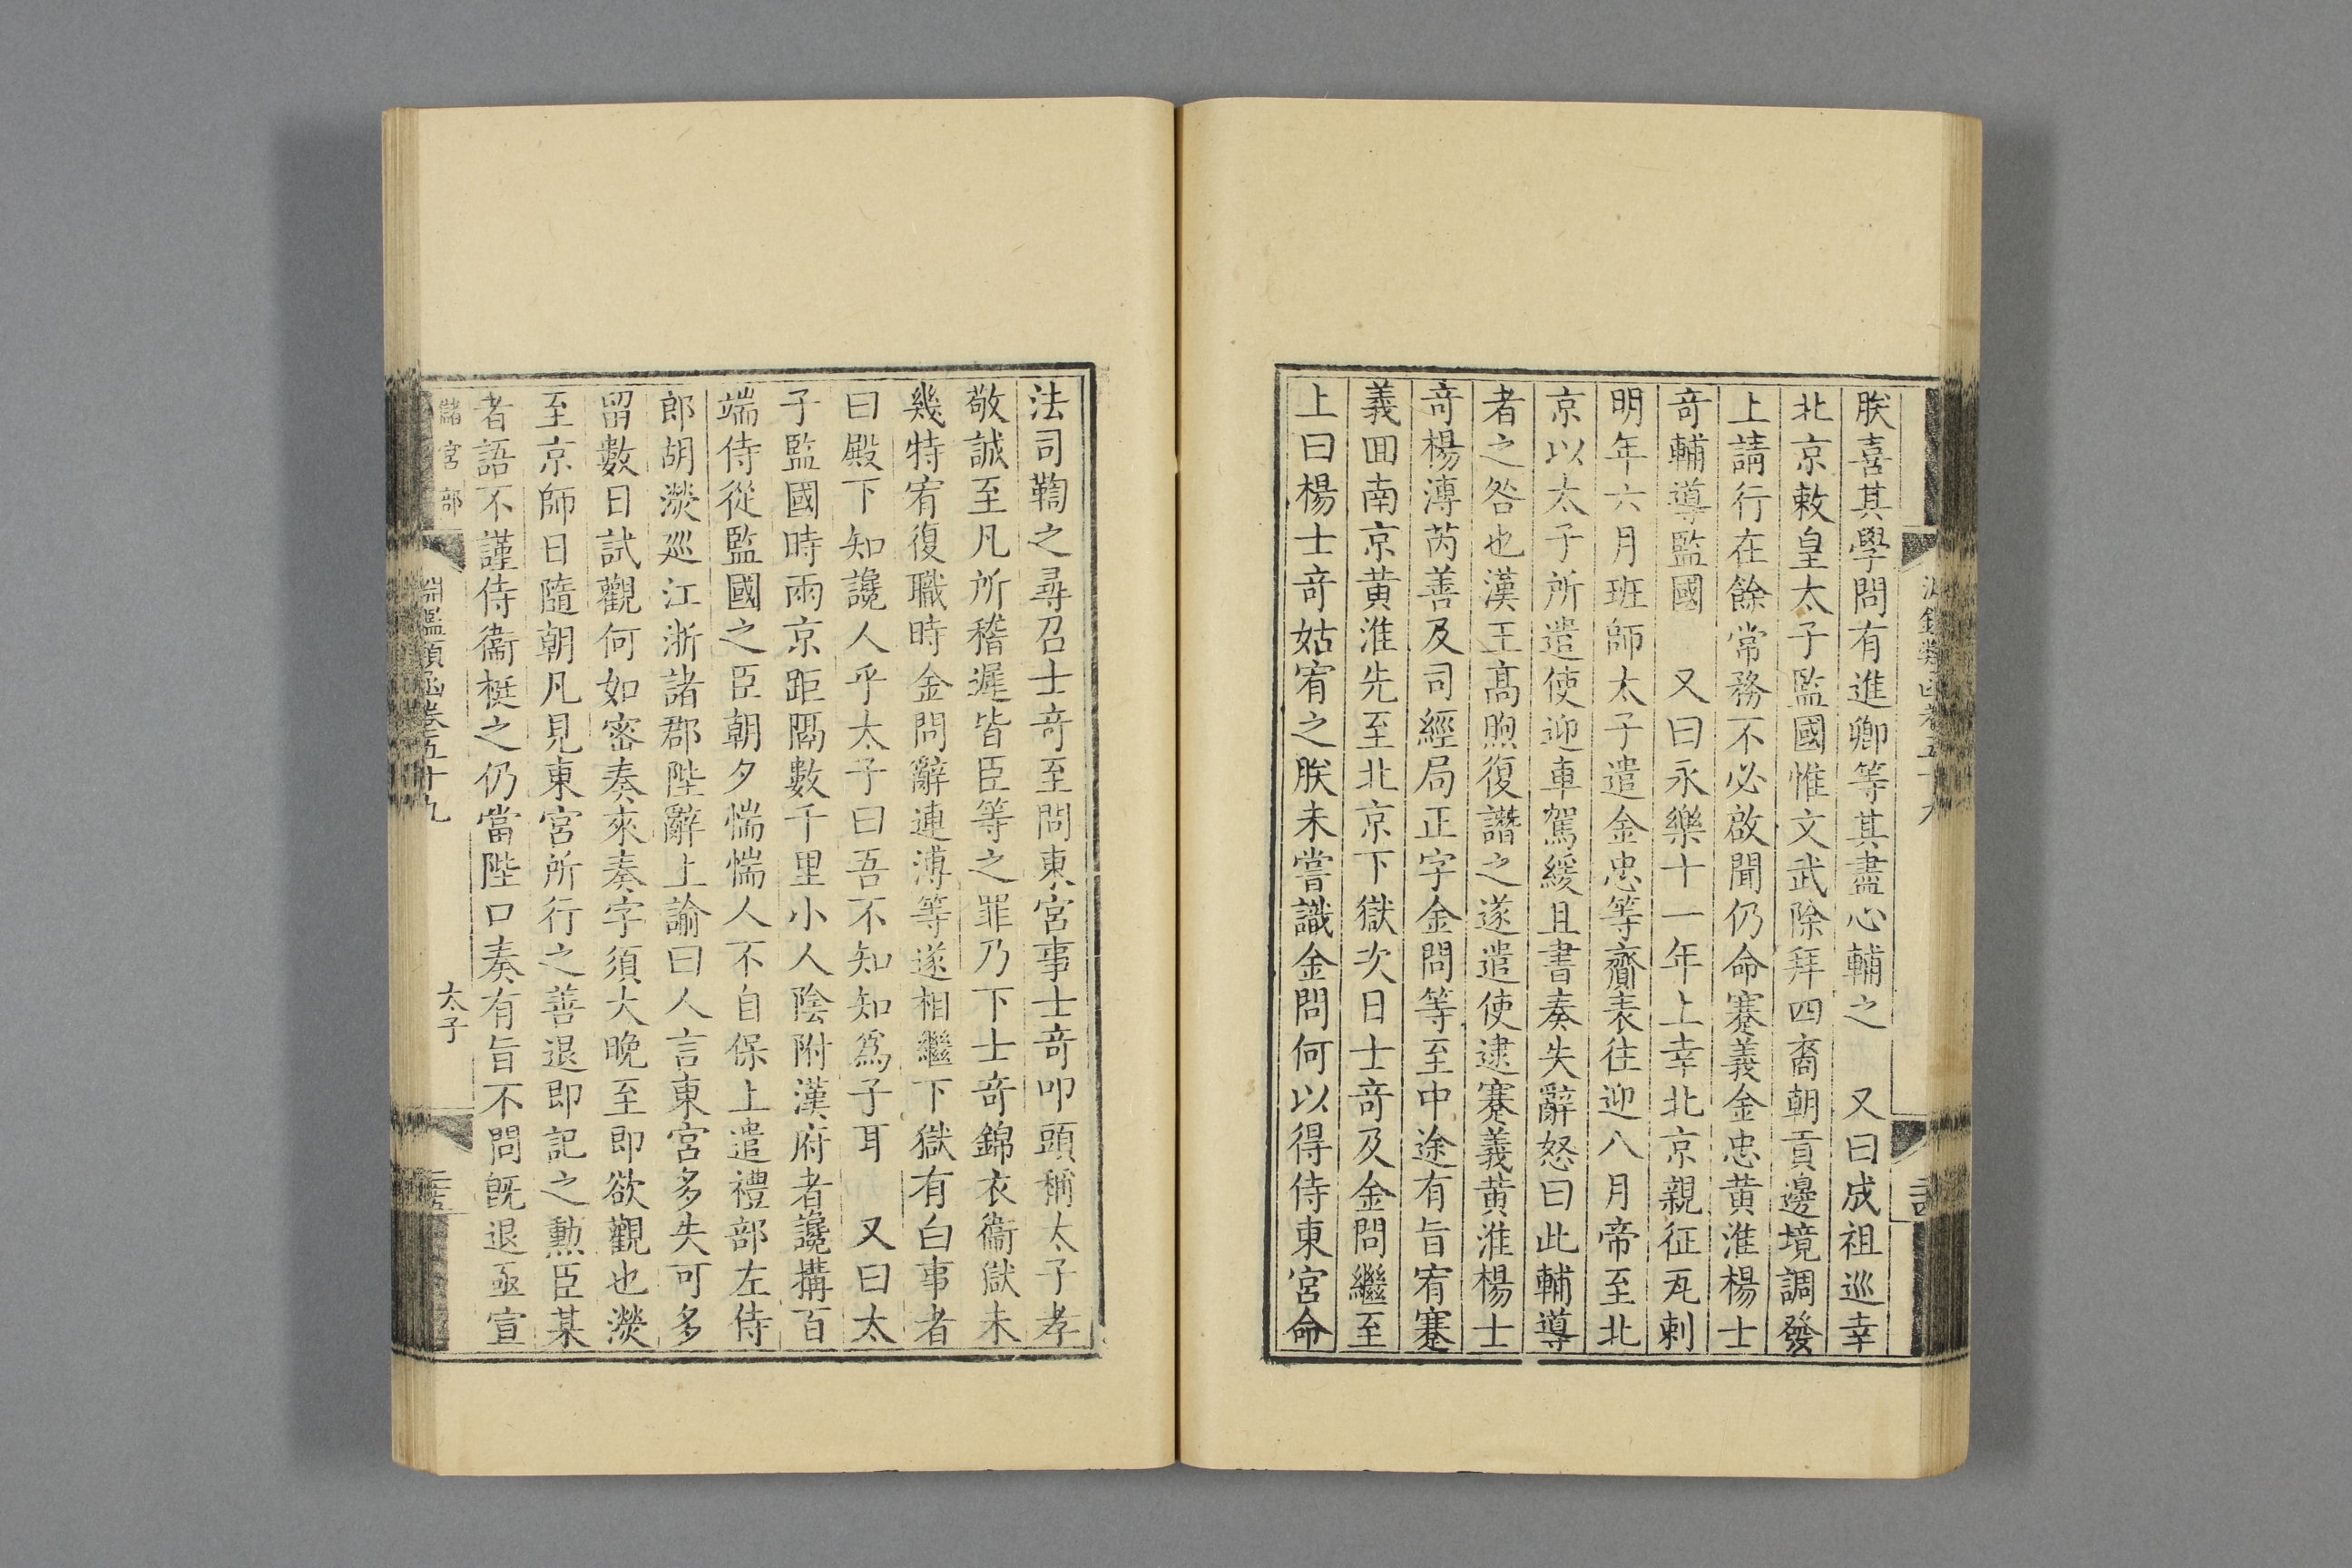 朕喜其學問有進卿等其盡心輔之　又曰成祖巡幸
北京敕皇太子監國惟文武除拜四裔朝貢邊境調發
上請行在餘常務不必啟聞仍命蹇義金忠黃淮楊士
竒輔導監國　又曰永樂十一年上幸北京親征瓦剌
明年六月班師太子遣金忠等齎表往迎八月帝至北
京以太子所遣使迎車駕緩且書奏失辭怒曰此輔導
者之咎也漢王高煦復譖之遂遣使逮蹇義黃淮楊士
竒楊溥芮善及司經局正字金問等至中途有旨宥蹇
義回南京黃淮先至北京下獄次日士竒及金問繼至
上曰楊士竒姑宥之朕未嘗識金問何以得侍東宮命
法司鞫之尋召士竒至問東宮事士竒叩頭稱太子孝
敬誠至凡所稽遲皆臣等之罪乃下士竒錦衣衞獄未
幾特宥復職時金問辭連溥等遂相繼下獄有白事者
曰殿下知讒人乎太子曰吾不知知為子耳　又曰太
子監國時兩京距隔數千里小人陰附漢府者讒搆百
端侍從監國之臣朝夕惴惴人不自保上遣禮部左侍
郎胡濙巡江浙諸郡陛辭上諭曰人言東宮多失可多
留數日試觀何如密奏來奏字須大晚至即欲觀也濙
至京師日隨朝凡見東宮所行之善退即記之勳臣某
者語不謹侍衞梃之仍當陛口奏有旨不問旣退亟宣
儲宮部
淵鑑類函卷五十九
太子